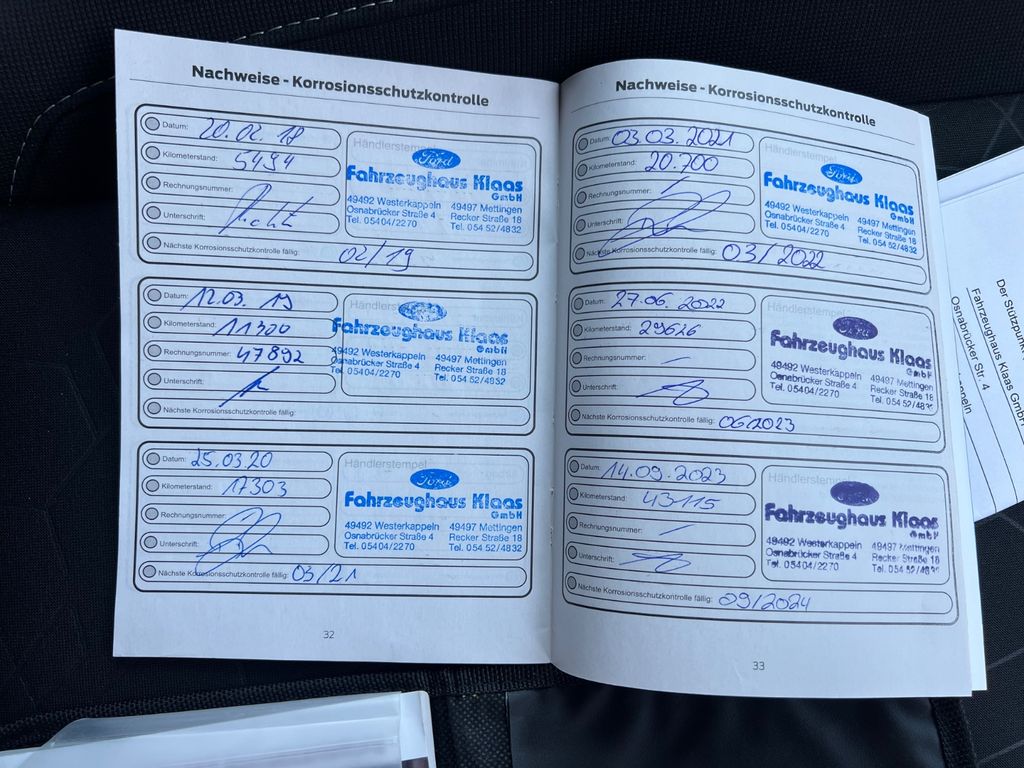 Nachweise - Korrosionsschutzkontrolle
Datum: 20.02.18
Kilometerstand: 5494
Rechnungsnummer:
Unterschrift:
Nächste Korrosionsschutzkontrolle fällig: 02/19
Händlerstempel
Ford
Fahrzeughaus Klaas
GmbH
49492 Westerkappeln 49497 Mettingen
Osnabrücker Straße 4 Recker Straße 18
Tel. 05404/2270 Tel. 054 52/4832
Datum: 12.03.19
Kilometerstand: 11300
Rechnungsnummer: 47892
Unterschrift:
Nächste Korrosionsschutzkontrolle fällig:
Händlerstempel
Ford
Fahrzeughaus Klaas
GmbH
49492 Westerkappeln 49497 Mettingen
Osnabrücker Straße 4 Recker Straße 18
Tel. 05404/2270 Tel. 054 52/4832
Datum: 25.03.20
Kilometerstand: 17303
Rechnungsnummer:
Unterschrift:
Nächste Korrosionsschutzkontrolle fällig: 03/21
Händlerstempel
Ford
Fahrzeughaus Klaas
GmbH
49492 Westerkappeln 49497 Mettingen
Osnabrücker Straße 4 Recker Straße 18
Tel. 05404/2270 Tel. 054 52/4832
32
Nachweise - Korrosionsschutzkontrolle
Datum: 03.03.2021
Kilometerstand: 20.700
Rechnungsnummer:
Unterschrift:
Nächste Korrosionsschutzkontrolle fällig: 03/2022
Händlerstempel
Ford
Fahrzeughaus Klaas
GmbH
49492 Westerkappeln 49497 Mettingen
Osnabrücker Straße 4 Recker Straße 18
Tel. 05404/2270 Tel. 054 52/4832
Datum: 27.06.2022
Kilometerstand: 29626
Rechnungsnummer:
Unterschrift:
Nächste Korrosionsschutzkontrolle fällig: 06/2023
Händlerstempel
Ford
Fahrzeughaus Klaas
GmbH
49492 Westerkappeln 49497 Mettingen
Osnabrücker Straße 4 Recker Straße 18
Tel. 05404/2270 Tel. 054 52/4832
Datum: 14.09.2023
Kilometerstand: 43115
Rechnungsnummer:
Unterschrift:
Nächste Korrosionsschutzkontrolle fällig: 09/2024
Händlerstempel
Fahrzeughaus Klaas
GmbH
49492 Westerkappeln 49497 Mettingen
Osnabrücker Straße 4 Recker Straße 18
Tel. 05404/2270 Tel. 054 52/483
33
Der Stützpunkt
Fahrzeughaus Klaas GmbH
Osnabrücker Str. 4